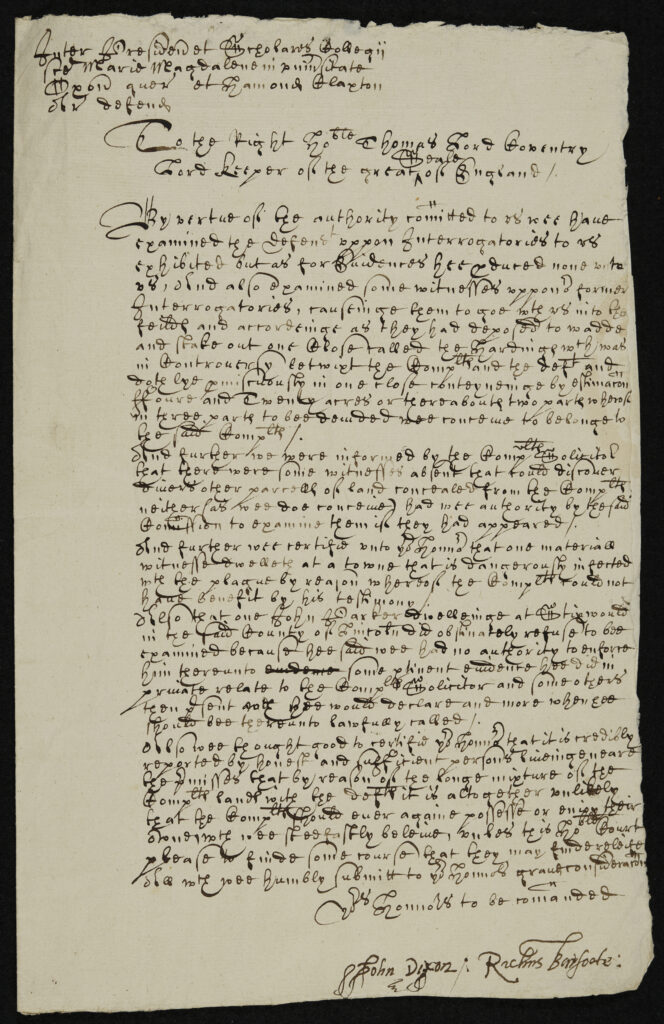 Inter Presiden et Scholares Collegii
Ste Marie Magdalene in
Oxon quer et Hamond Claxton
Ar defend
To the Right Hoble Thomas Lord Coventry
Lord Keeper of the great Seale of England /.
By vertue of the authority comitted to us wee have
examined the defend uppon Interrogatories to us
exhibited but as for Evidences hee pduced none unto
us, And also examined some witnesses uppon former
Interrogatories, causeinge them to goe wth us into the
feilds and accordeinge as they had deposed to
and stake out one Close called the wch was
in Controversy betwixt the Complts and the deft and
doth lye pmiscuously in one close conteyneinge by estimacon
ffoure and Twenty acres or thereabout two parts whereof
in three parts to bee devided wee conceive to belonge to
the said Complts /.
And further we were informed by the Complts Solicitor
that there were some witnesses absent that could discover
divers other parcells of land concealed from the Complts
neither (as wee doe conceive) had wee authority by the said
Comission to examine them if they had appeared /.
And further wee certifie unto yor Honnor that one materiall
witnesse dwelleth at a towne that is dangerously infected
with the plague by reason whereof the Complts could not
have benefit by his testimony /
Also that one John Parker dwellinge at Stixwould
in the said County of Lincoln did obstinately refuse to bee
examined because hee said wee had no authority to enforce
him thereunto evidence some ptinent evidence hee did in
private relate to the Complts Solicitor and some others
then psent wch hee would declare and more when hee
should bee thereunto lawfully called /.
Also wee thought good to certifie yor Honnor that it is credibly
reported by honest and sufficient persons liveinge neare
the pmisses that by reason of the longe mixture of the
Complts lands with the defts it is altogether unlikely
that the Complts should ever againe possesse or enioy their
owne wch wee stedfastly beleive, unles this Hoble Court
please to finde some course that they may finde releife
All wch wee humbly submitt to yor Honnors grave consideracon
Yor Honnors to be comanded
John Dixon /. Richus